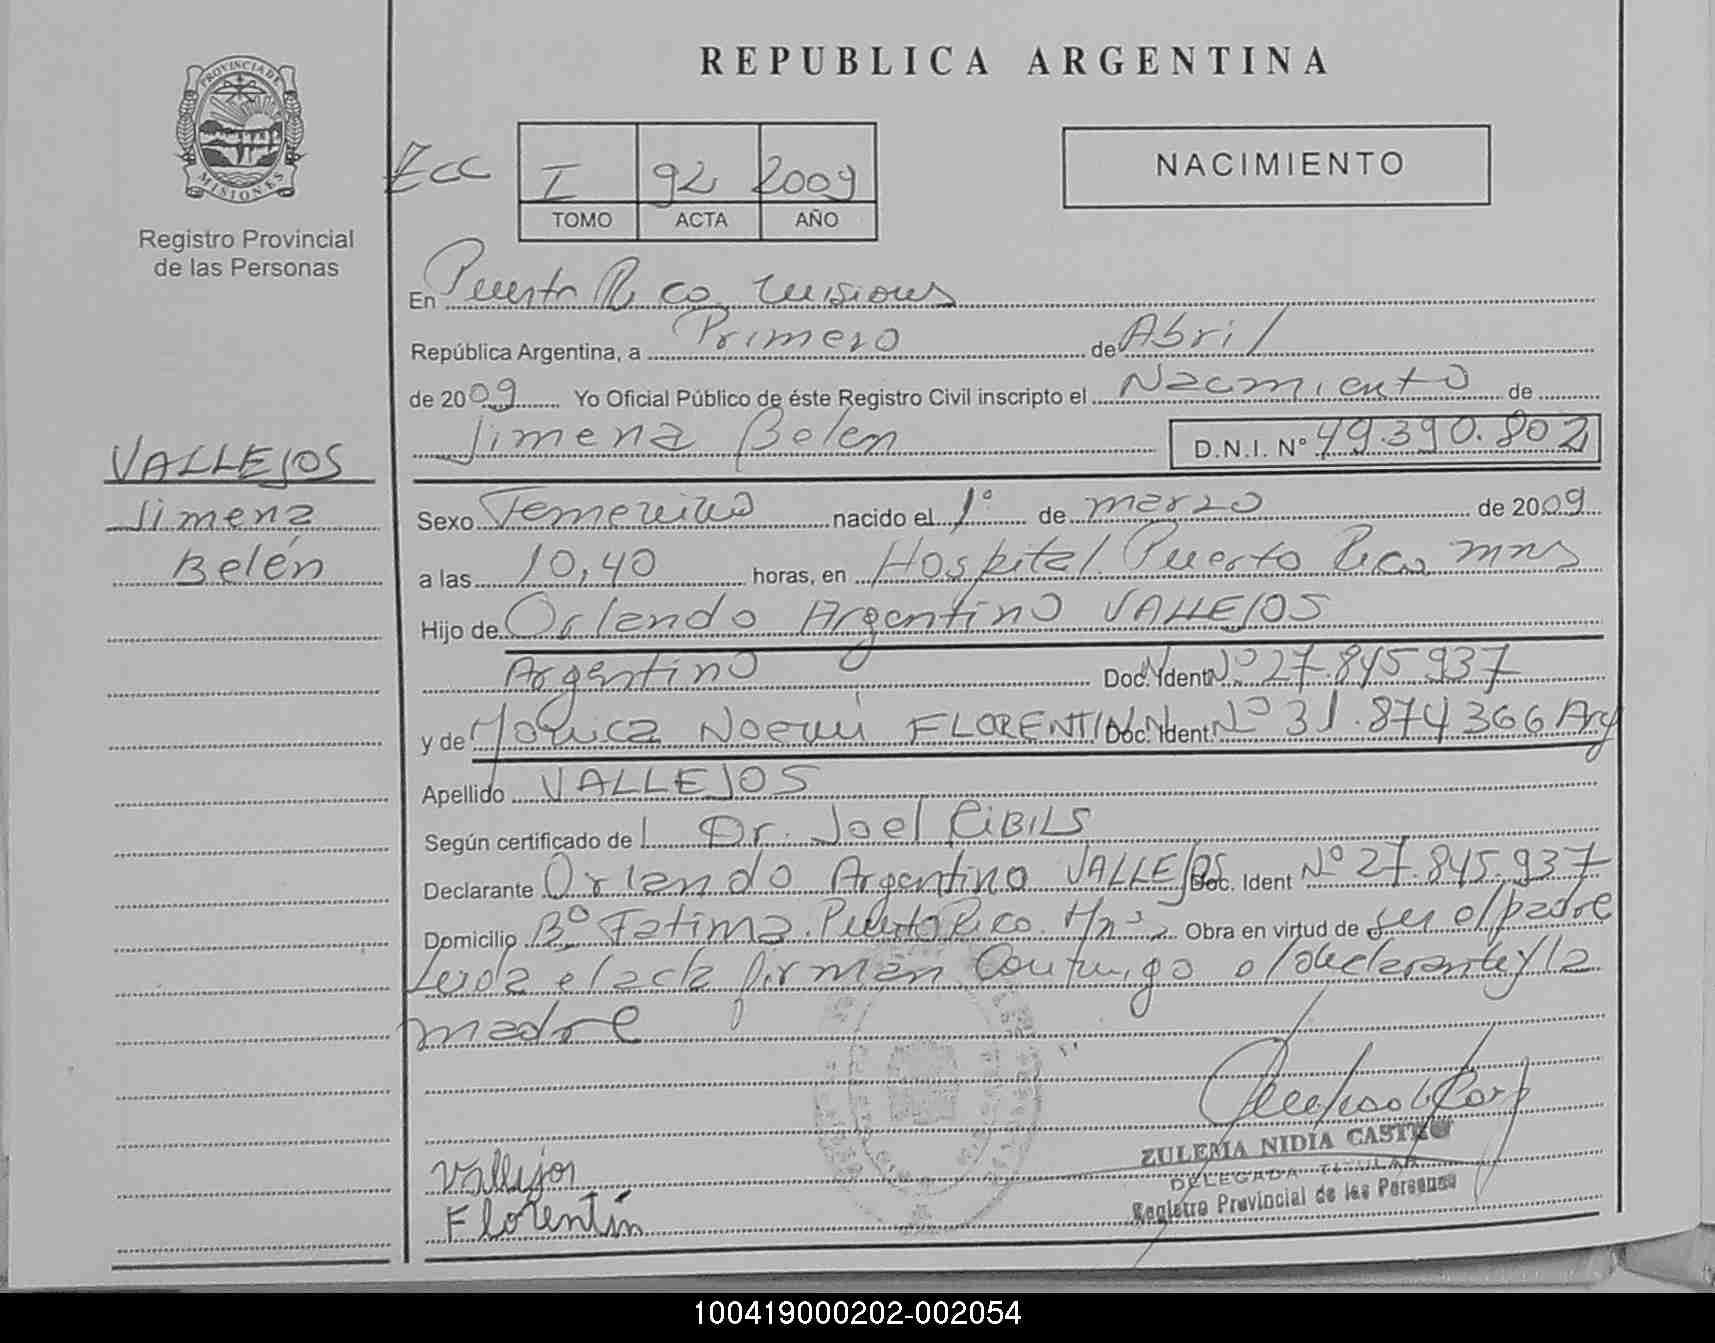 PROVINCIA DE
MISIONES
Registro Provincial
de las Personas
REPUBLICA ARGENTINA
Ecc
I 92 2009
TOMO ACTA AÑO
NACIMIENTO
En Puerto Rico Misiones
República Argentina, a Primero de Abril
de 2009 Yo Oficial Público de éste Registro Civil inscripto el Nacimiento de
Jimena Belen D.N.I. N° 49.390.802
VALLEJOS
Jimena
Belén
Sexo Femenino nacido el 1° de marzo de 2009
a las 10,40 horas, en Hospital Puerto Rico mns
Hijo de Orlando Argentino VALLEJOS
Argentino Doc. Ident Nº 27.845.937
y de Monica Noemi FLORENTIN Doc. Ident. Nº 31.874366 Arg
Apellido VALLEJOS
Según certificado de Dr. Joel CIBILS
Declarante Orlando Argentino VALLEJOS Doc. Ident Nº 27.845.937
Domicilio Bº Fatima. Puerto Rico. Mns. Obra en virtud de ser el padre
Leida el acta firman conmigo el declarante y la
madre
ZULEMA NIDIA CASTRO
DELEGADA TITULAR
Registro Provincial de las Personas
Vallejos
Florentín
100419000202-002054